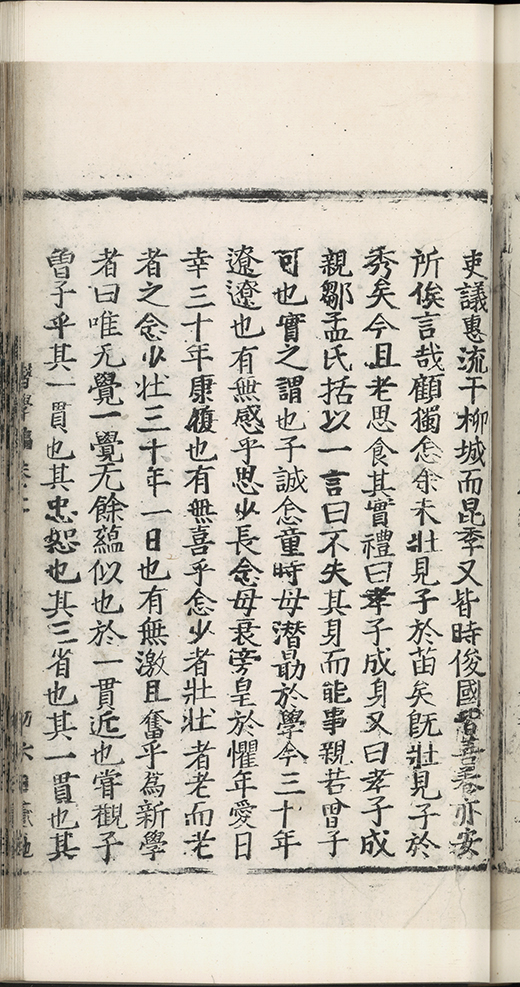 吏議惠流于柳城而昆季又皆時俊國亦安
所俟言哉顧獨念余未壯見子於苗矣旣壯見子於
秀矣今且老思食其實禮曰孝子成身又曰孝子成
親鄒孟氏括以一言曰不失其身而能事親若曾子
可也實之謂也子誠念童時母潛勗於學今三十年
遼遼也有無感乎思少長念母衰旁皇於懼年愛日
幸三十年康復也有無喜乎念少者壯壯者老而老
者之念少壯三十年一日也有無激且奮乎爲新學
者曰唯无覺一覺无餘蘊似也於一貫近也甞觀子
曾子乎其一貫也其忠恕也其三省也其一貫也其